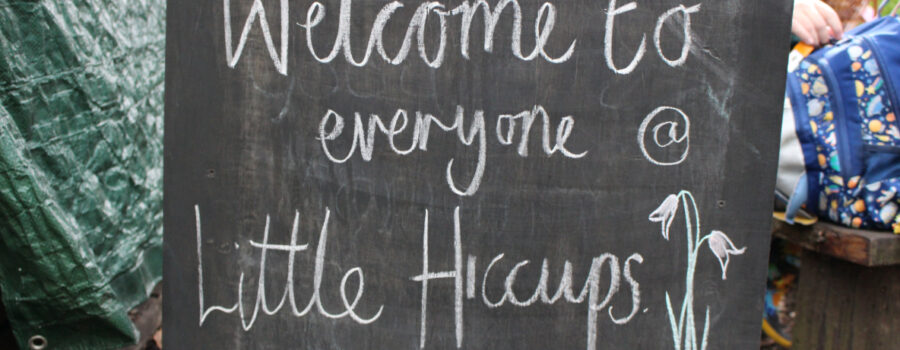 Welcome to
everyone @
Little Hiccups.